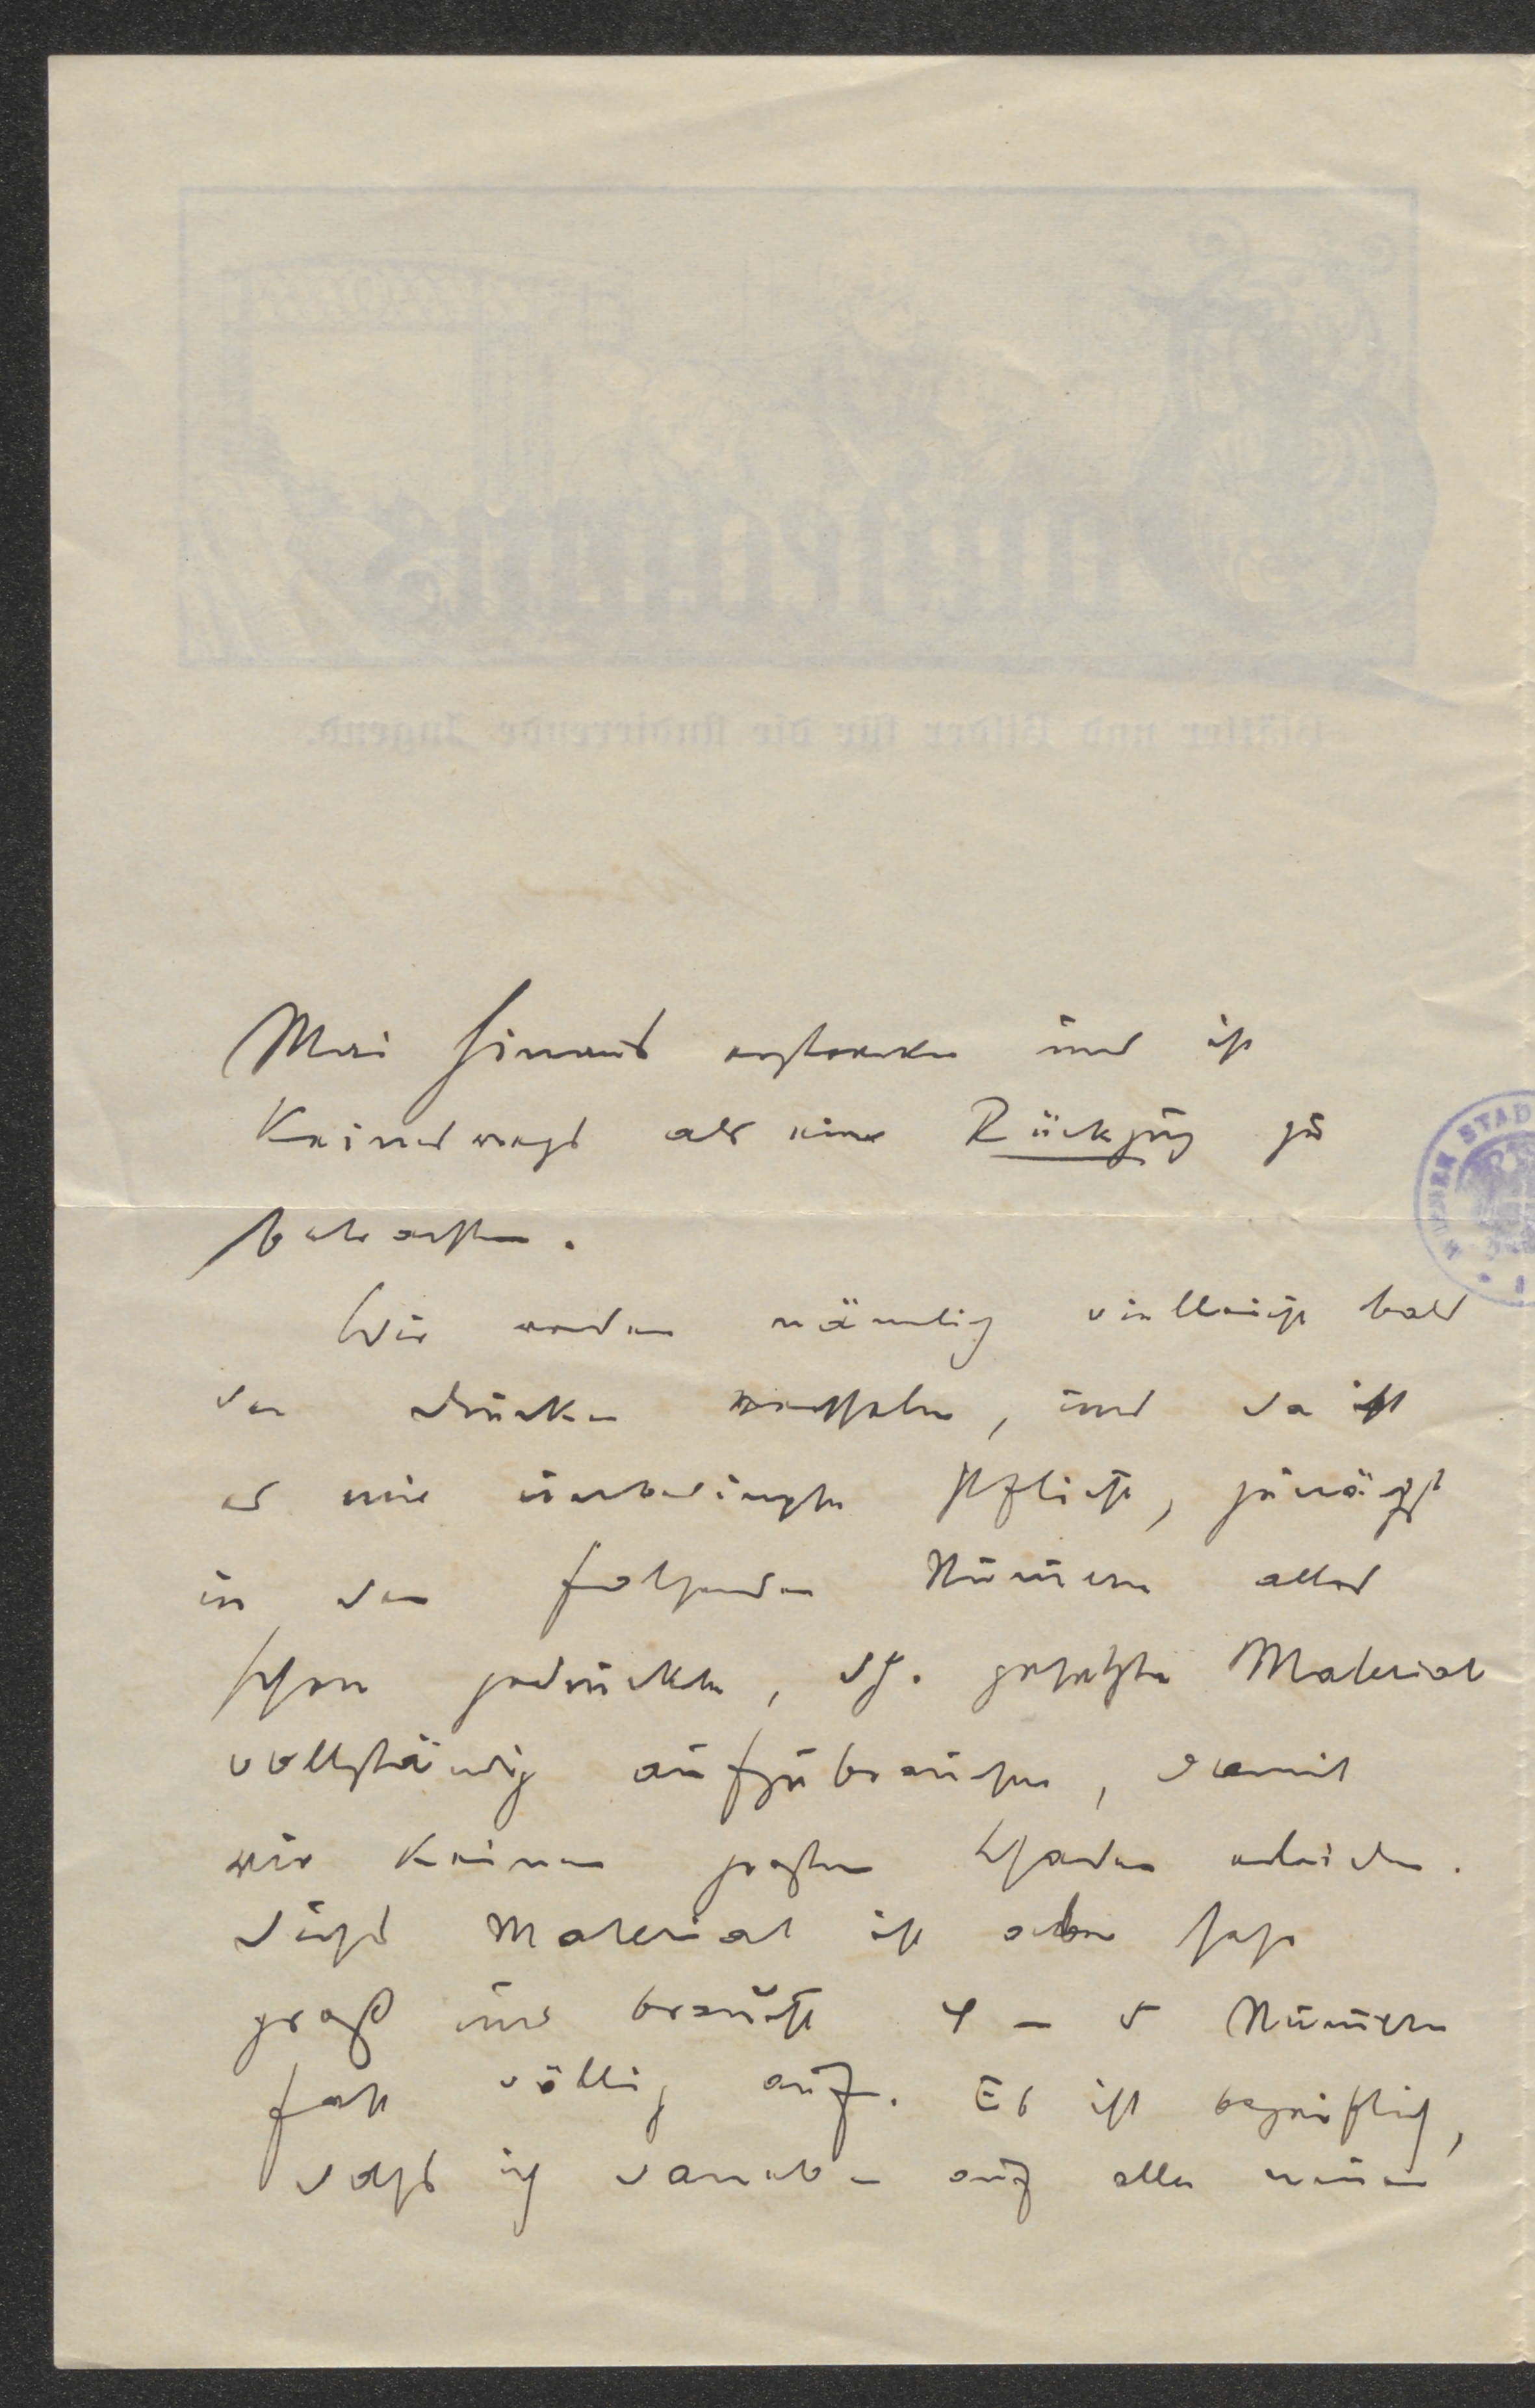 Blätter und Bilder für die studierende Jugend.
Mai hinaus erstrecken und ist
Keineswegs als eine Rückzug zu
betrachten.
Wir werden nämlich vielleicht bald
den Drucker wechseln, und da ist
es eine unbedingte Pflicht, zunächst
in den folgenden Nummern alles
schon gedruckte, d.h. gesetzte Material
vollständig aufzubrauchen, damit
wir keinen großen Schaden erleiden.
Dieses Material ist aber sehr
groß und braucht 4 – 5 Nummern
fast völlig auf. Es ist begreiflich,
dass ich daneben auf alle neuen